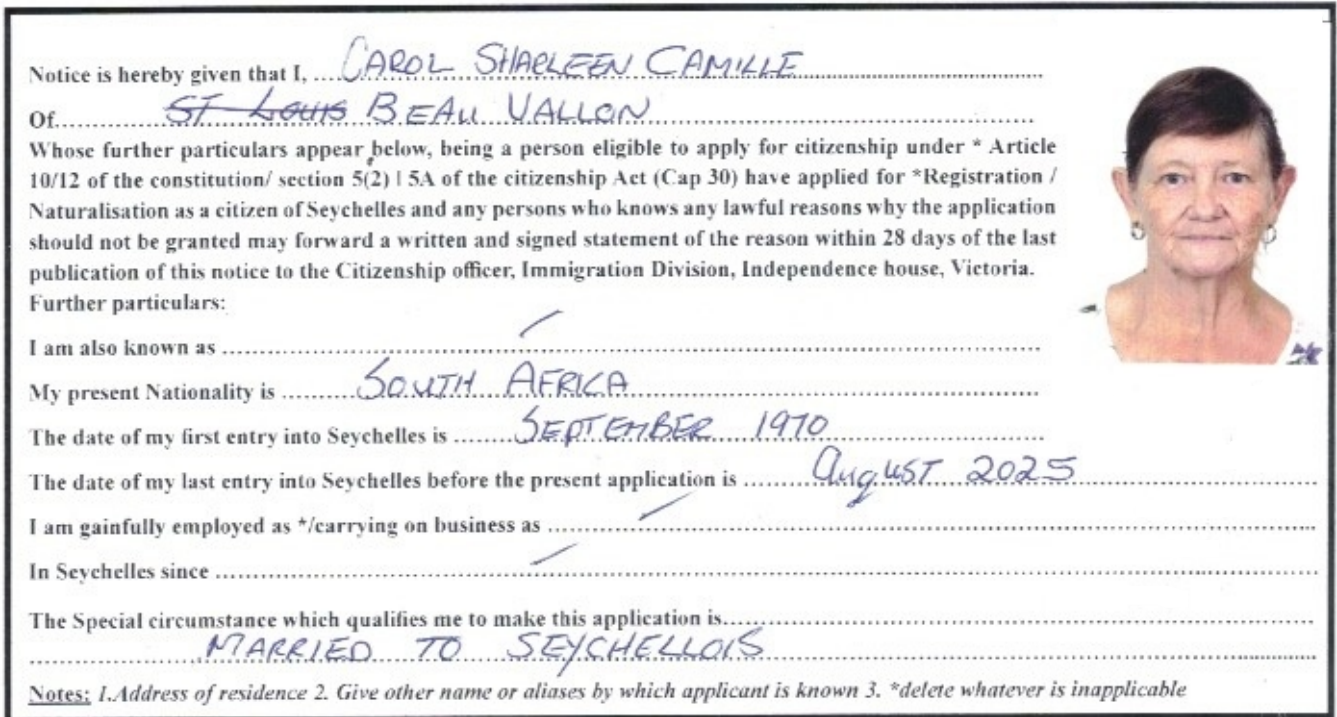 Notice is hereby given that I, ....CAROL SHARLEEN CAMILLE
Of........ ~~ST LOUIS~~ BEAU VALLON
Whose further particulars appear below, being a person eligible to apply for citizenship under * Article
10/12 of the constitution/ section 5(2) | 5A of the citizenship Act (Cap 30) have applied for *Registration /
Naturalisation as a citizen of Seychelles and any persons who knows any lawful reasons why the application
should not be granted may forward a written and signed statement of the reason within 28 days of the last
publication of this notice to the Citizenship officer, Immigration Division, Independence house, Victoria.
Further particulars:
I am also known as ........ / ........
My present Nationality is ........ SOUTH AFRICA ........
The date of my first entry into Seychelles is ........ SEPTEMBER 1970 ........
The date of my last entry into Seychelles before the present application is ........ August 2025 ........
I am gainfully employed as */carrying on business as ........ / ........
In Seychelles since ........ / ........
The Special circumstance which qualifies me to make this application is........
........ MARRIED TO SEYCHELLOIS ........
Notes: 1.Address of residence 2. Give other name or aliases by which applicant is known 3. *delete whatever is inapplicable